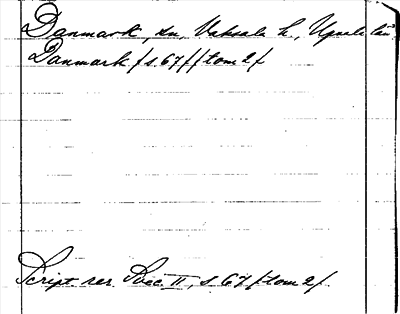 Danmark, sn, Vaksala h., Upsala län
Danmark /s. 67/ /tom 2/
Script rer Svec. II, s 67 /tom 2/.